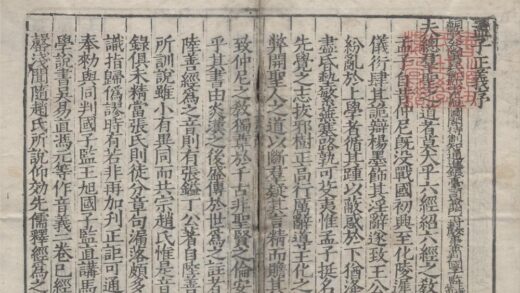 孟子正義序
夫總羣聖之道者莫大乎六經紹六經之教
孟子自昔仲尼既沒戰國初興至化陵遲
儀衍肆其詭辯楊墨飾其淫辭遂致王公
紛亂於上學者循其踵以蔽惑於下猶洚
盡昏墊繁蕪塞路孰可芟夷惟孟子挺名
先覺之志拔邪樹正高行厲辭導王化之
弊開聖人之道以斷羣疑其言精而贍其
致仲尼之教獨尊於千古非聖賢之倫安
乎其書由炎漢之後盛傳於世爲之註者
陸善經爲之音則有張鎰丁公著自陸善
所訓說雖小有異同而共宗趙氏惟是音
錄俱未精當張氏則徒分章句漏落頗多
識指歸僞謬時有若非再加刊正詎可通
奉勑與同判國子監王旭國子監直講馬
學說書吳易直馮元等作音義二卷已經
罄淺聞隨趙氏所說仿效先儒釋經爲之